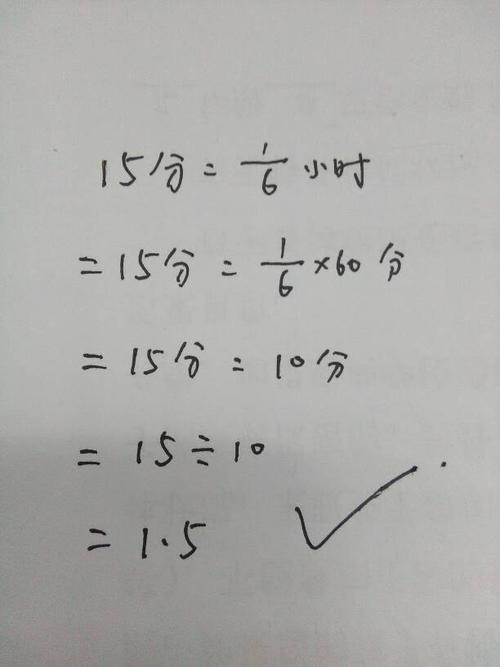 15分=1/6小时
=15分=1/6×60分
=15分=10分
=15÷10
=1.5